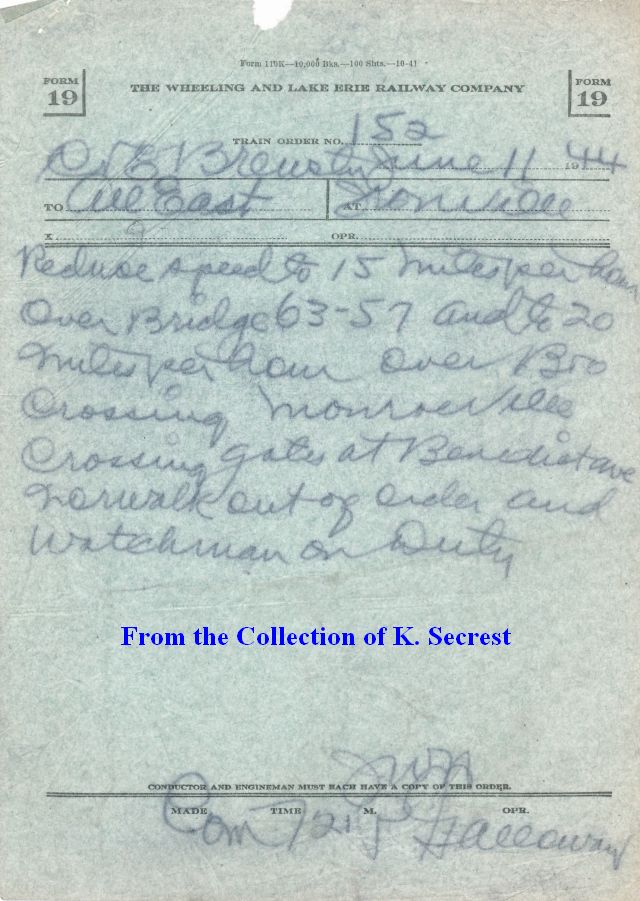 Form 119K—10,000 Bks.—100 Shts.—10-41
FORM 19
THE WHEELING AND LAKE ERIE RAILWAY COMPANY
FORM 19
TRAIN ORDER NO. 152
Brewster June 11 1944
TO All East AT Ironville
X OPR.
Reduce speed to 15 miles per hour
Over Bridge 63-57 and to 20
miles per hour over B&O
Crossing Monroeville
Crossing gates at Benedict ave
Norwalk out of order and
Watchman on Duty
From the Collection of K. Secrest
CONDUCTOR AND ENGINEMAN MUST EACH HAVE A COPY OF THIS ORDER.
MADE TIME M. OPR.
Com 721 P Galloway